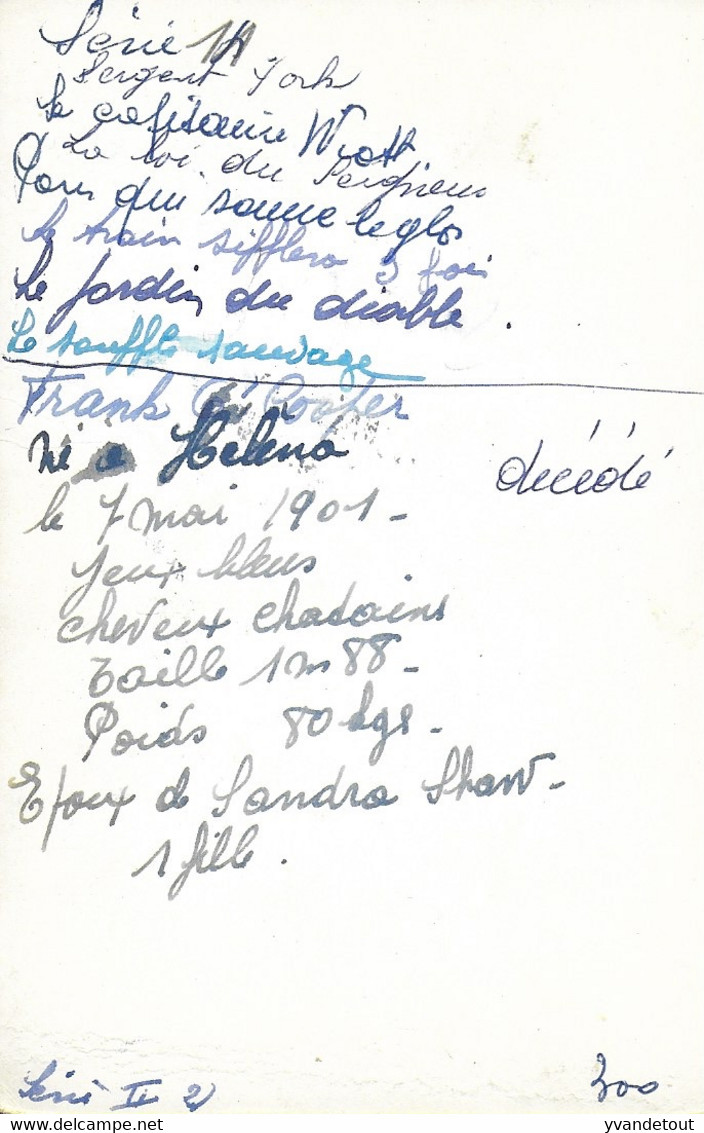 Série
Sergent York
Le capitaine Wyatt
La loi du Seigneur
Pour qui sonne le glas
Le train sifflera 3 fois
Le jardin du diable.
Le souffle sauvage
Frank Cooper
né a Helena
décédé
le 7 mai 1901 -
Yeux bleus
cheveux chatains
Taille 1m 88 -
Poids 80 kgs -
Epoux de Sandra Shaw -
1 fille.
Série II 2
300
yvandetout